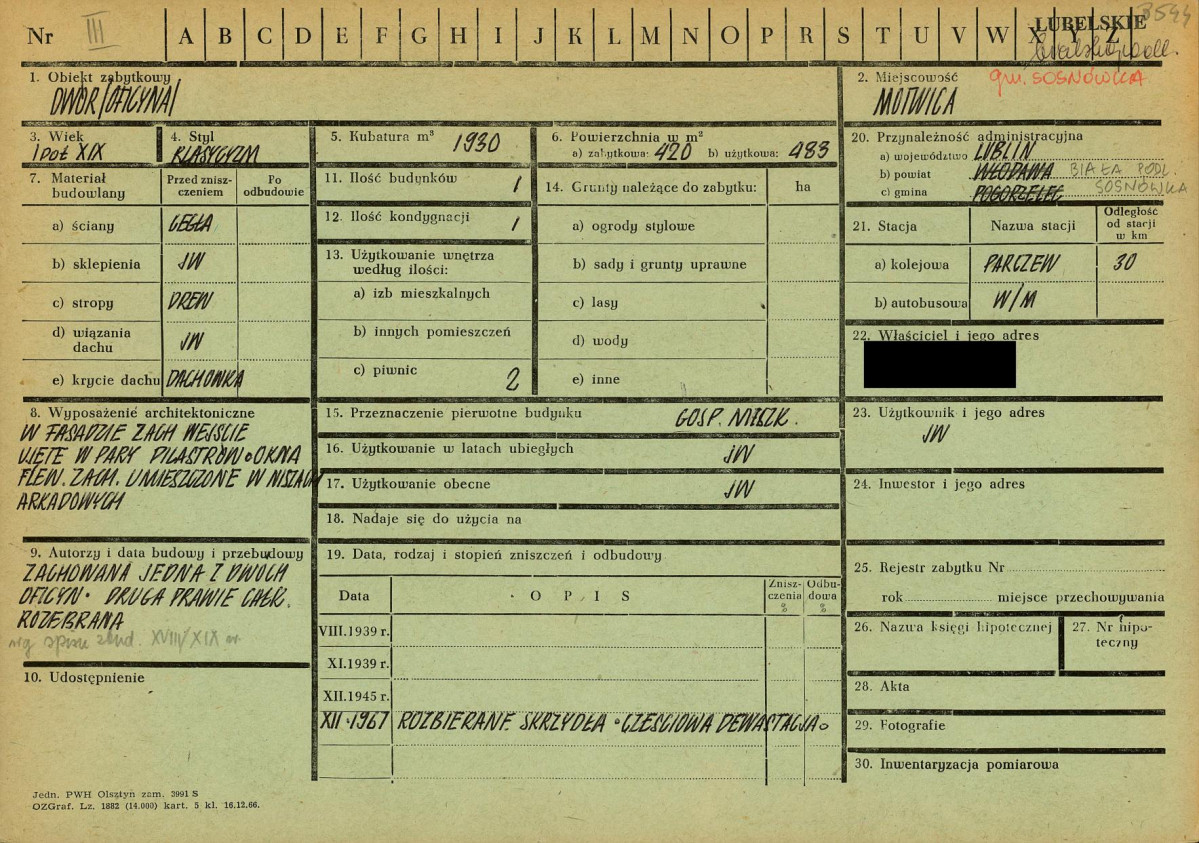 Nr III A B C D E F G H I J K L M N O P R S T U V W X Y Z
LUBELSKIE
3544
gm. SOSNÓWKA
1. Obiekt zabytkowy
DWÓR /OFICYNA/
2. Miejscowość
MOTWICA
3. Wiek
I POŁ XIX
4. Styl
KLASYCYZM
5. Kubatura m³ 1930
6. Powierzchnia w m²
a) zabytkowa: 420 b) użytkowa: 483
7. Materiał budowlany
Przed zniszczeniem
Po odbudowie
a) ściany CEGŁA
b) sklepienia JW
c) stropy DREW
d) wiązania dachu JW
e) krycie dachu DACHÓWKA
8. Wyposażenie architektoniczne
W FASADZIE ZACH WEJŚCIE
UJĘTE W PARY PILASTRÓW. OKNA
ELEW. ZACH. UMIESZCZONE W NISZACH
ARKADOWYCH
9. Autorzy i data budowy i przebudowy
ZACHOWANA JEDNA Z DWÓCH
OFICYN. DRUGA PRAWIE CAŁK.
ROZEBRANA
wg spisu zbud. XVIII/XIX w.
10. Udostępnienie
11. Ilość budynków 1
12. Ilość kondygnacji 1
13. Użytkowanie wnętrza
według ilości:
a) izb mieszkalnych
b) innych pomieszczeń
c) piwnic 2
14. Grunty należące do zabytku: ha
a) ogrody stylowe
b) sady i grunty uprawne
c) lasy
d) wody
e) inne
15. Przeznaczenie pierwotne budynku GOSP. MIESZK.
16. Użytkowanie w latach ubiegłych JW
17. Użytkowanie obecne JW
18. Nadaje się do użycia na
19. Data, rodzaj i stopień zniszczeń i odbudowy
Data
OPIS
Zniszczenia %
Odbudowa %
VIII.1939 r.
XI.1939 r.
XII.1945 r.
XII.1967 ROZBIERANE SKRZYDŁA. CZĘŚCIOWA DEWASTACJA.
20. Przynależność administracyjna
a) województwo LUBLIN
b) powiat WŁODAWA BIAŁA PODL.
c) gmina POGORZELEC SOSNÓWKA
21. Stacja
Nazwa stacji
Odległość od stacji w km
a) kolejowa PARCZEW 30
b) autobusowa W/M
22. Właściciel i jego adres
23. Użytkownik i jego adres
JW
24. Inwestor i jego adres
25. Rejestr zabytku Nr
rok miejsce przechowywania
26. Nazwa księgi hipotecznej
27. Nr hipoteczny
28. Akta
29. Fotografie
30. Inwentaryzacja pomiarowa
Jedn. PWH Olsztyn zam. 3991 S
OZGraf. Lz. 1882 (14.000) kart. 5 kl. 16.12.66.